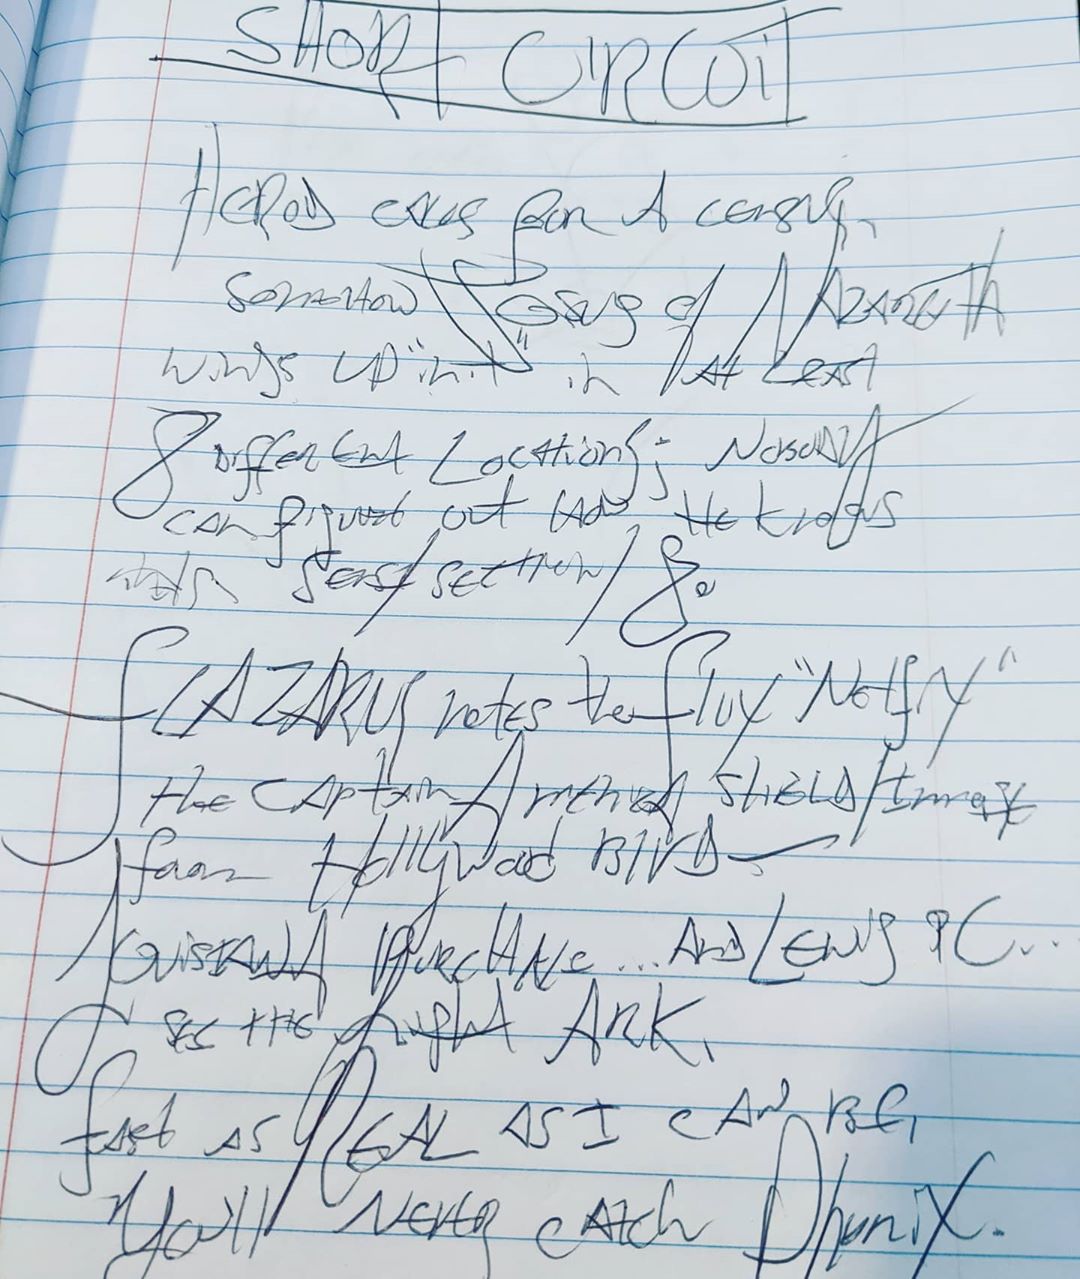 SHORT CIRCUIT
HEROD calls for A census,
somehow Jesus of NAZARETH
winds up "in it" in At Least
8 Different Locations; Nobody
can figure out how He
sense/section/8.
LAZARUS notes the "Notify"
the CAptain AmericA SHIELD/Image
from Hollywood BlVD
PurcHAse... And Lewis PC...
the ARK,
fast as REAL AS I CAN BE,
You'll never catch Phenix.